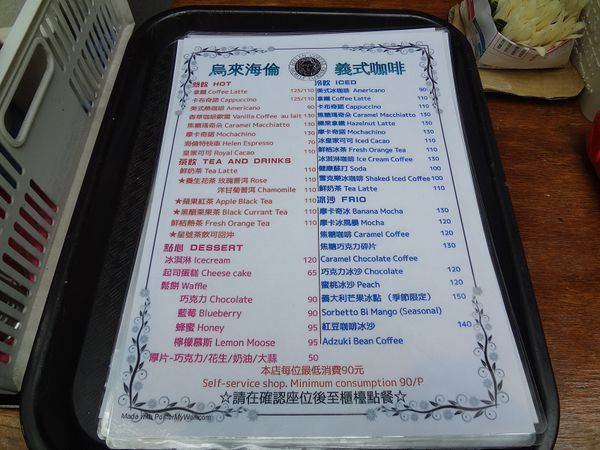 烏來海倫 義式咖啡
熱飲 HOT
拿鐵 Coffee Latte 125/110
卡布奇諾 Cappuccino 125/110
美式熱咖啡 Americano 90
香草咖啡歐蕾 Vanilla Coffee au lait 130
焦糖瑪奇朵 Caramel Macchiatto 130
摩卡奇諾 Mochachino 130
海倫特快車 Helen Espresso 70
皇家可可 Royal Cacao 110
茶飲 TEA AND DRINKS
鮮奶茶 Tea Latte 110
★養生花茶 玫瑰普洱 Rose 110
洋甘菊普洱 Chamomile 110
★蘋果紅茶 Apple Black Tea 110
★黑醋栗果茶 Black Currant Tea 110
鮮桔熱茶 Fresh Orange Tea 110
★星號茶飲可回沖
點心 DESSERT
冰淇淋 Icecream 110
起司蛋糕 Cheese cake 65
鬆餅 Waffle
巧克力 Chocolate 90
藍莓 Blueberry 90
蜂蜜 Honey 95
檸檬慕斯 Lemon Moose 95
厚片-巧克力/花生/奶油/大蒜 50
冷飲 ICED
美式冰咖啡 Americano 90
拿鐵 Coffee Latte 110
卡布奇諾 Cappuccino 110
焦糖瑪奇朵 Caramel Macchiatto 130
榛果拿鐵 Hazelnut Latte 130
摩卡奇諾 Mochachino 130
冰皇家可可 Iced Cacao 110
鮮桔冰茶 Fresh Orange Tea 110
冰淇淋咖啡 Ice Cream Coffee 130
雪克榮冰咖啡 Shaked Iced Coffee 100
健康蘇打 Soda 100
鮮奶茶 Tea Latte 110
冰沙 FRIO
摩卡奇冰 Banana Mocha 130
摩卡冰風暴 Mocha 120
焦糖咖啡 Caramel Coffee 120
焦糖巧克力碎片 130
Caramel Chocolate Coffee
巧克力冰沙 Chocolate 120
蜜桃冰沙 Peach 120
義大利芒果冰點 (季節限定) 150
Sorbetto Bi Mango (Seasonal)
紅豆咖啡冰沙 140
Adzuki Bean Coffee
本店每位最低消費90元
Self-service shop. Minimum consumption 90/P
☆請在確認座位後至櫃檯點餐☆
Made with PosterMyWall.com